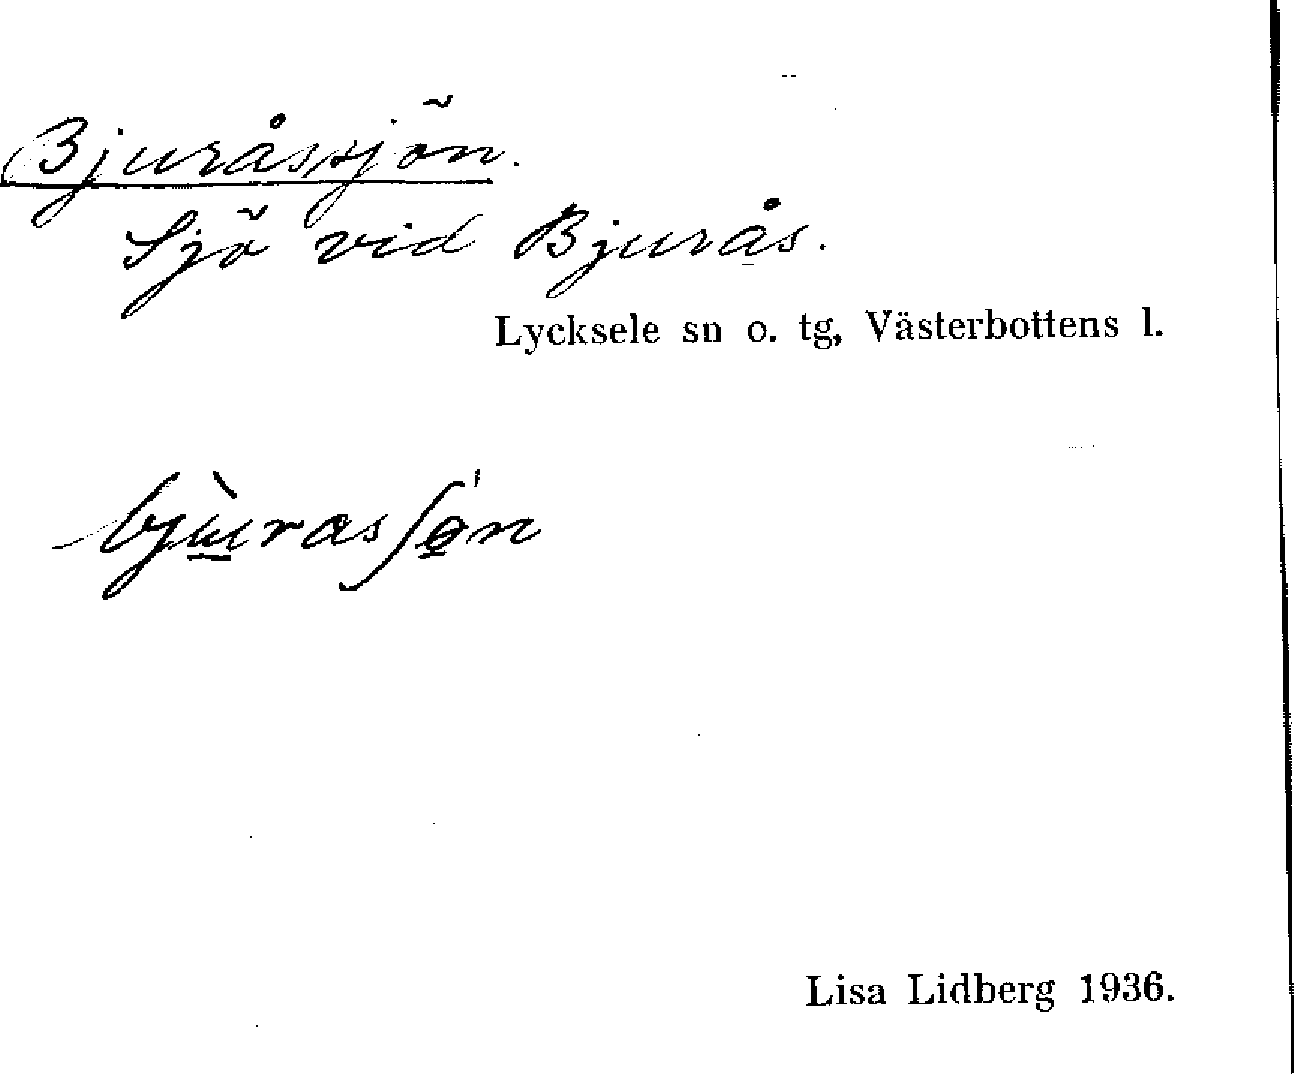 Bjuråssjön.
Sjö vid Bjurås.
Lycksele sn o. tg, Västerbottens l.
bjùrasʃø̱'n
Lisa Lidberg 1936.